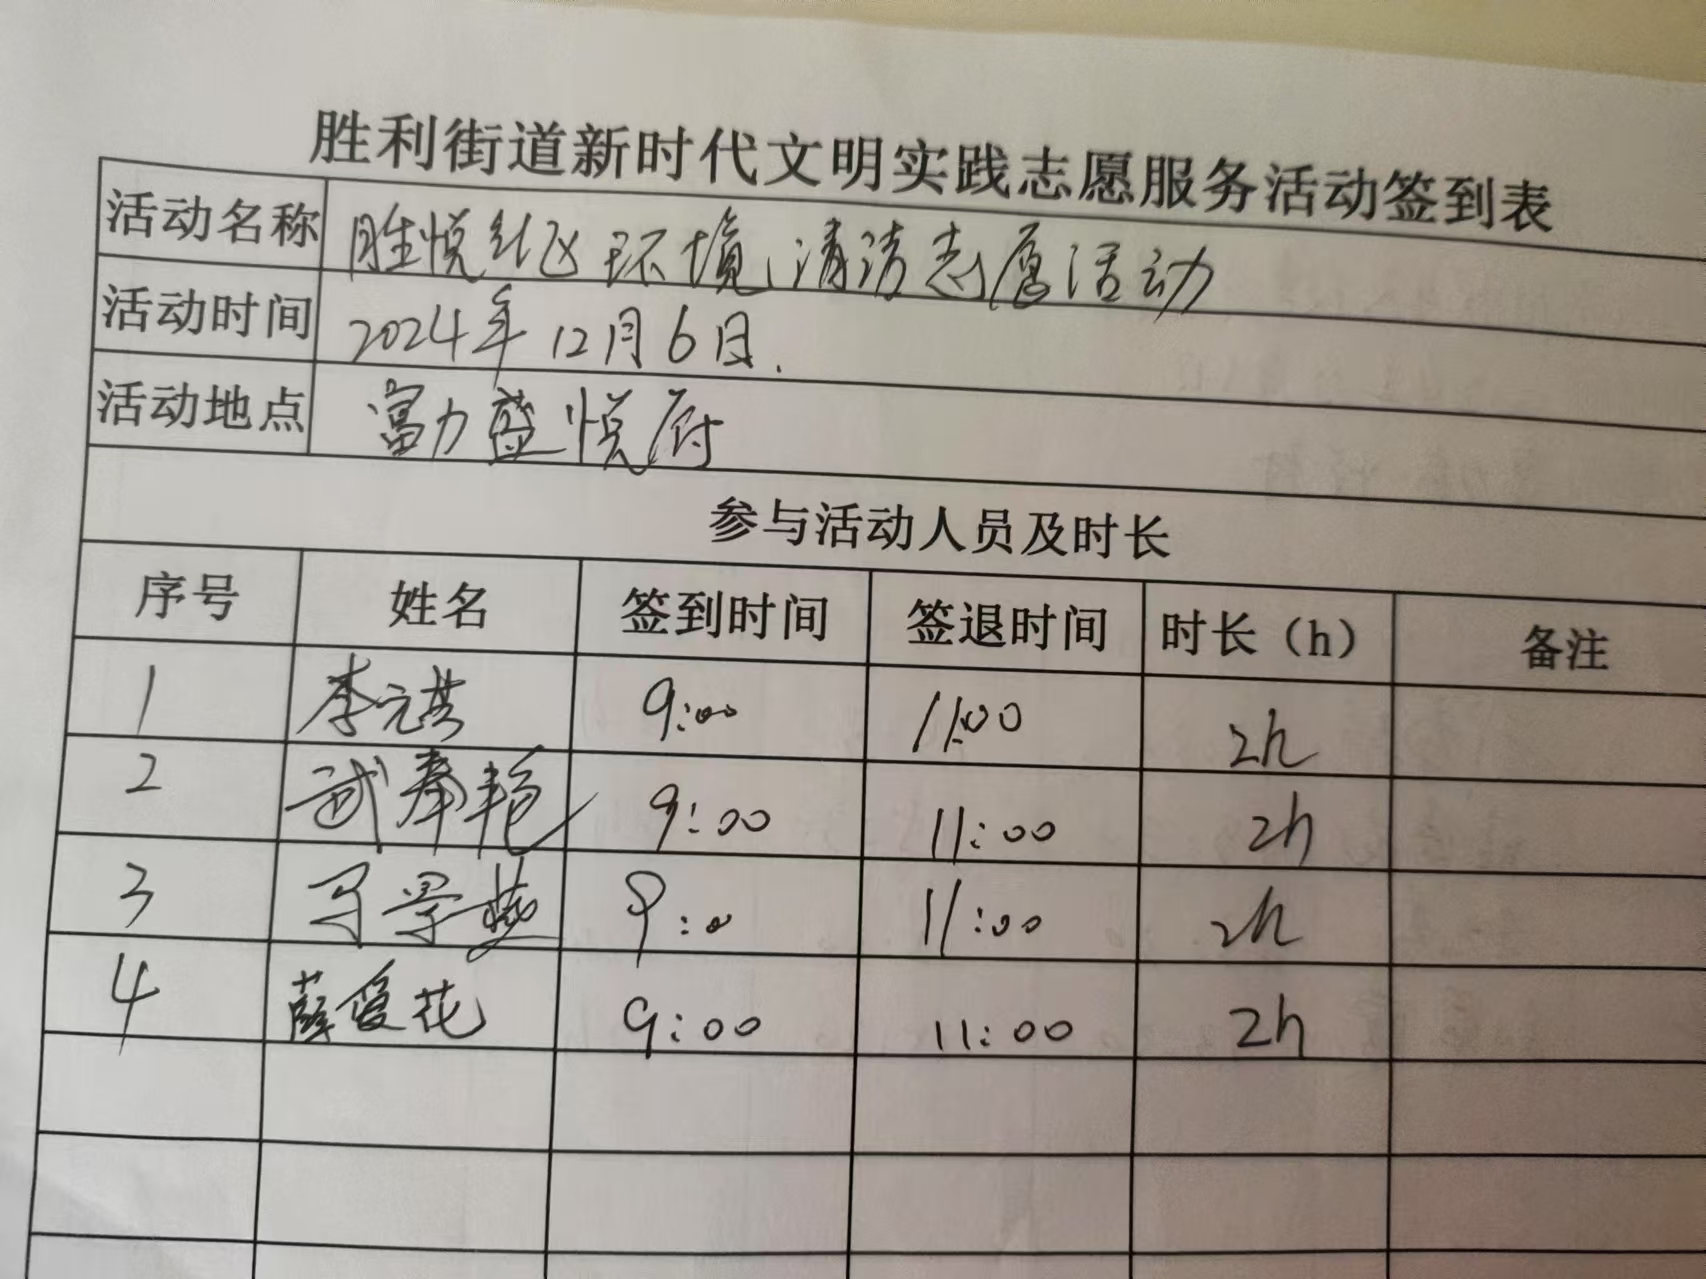 胜利街道新时代文明实践志愿服务活动签到表
活动名称 胜悦社区环境清洁志愿活动
活动时间 2024年12月6日.
活动地点 富力盛悦府
参与活动人员及时长
序号 姓名 签到时间 签退时间 时长（h） 备注
1 李元芸 9:00 11:00 2h
2 武奉艳 9:00 11:00 2h
3 马学燕 9:0 11:00 2h
4 薛爱花 9:00 11:00 2h